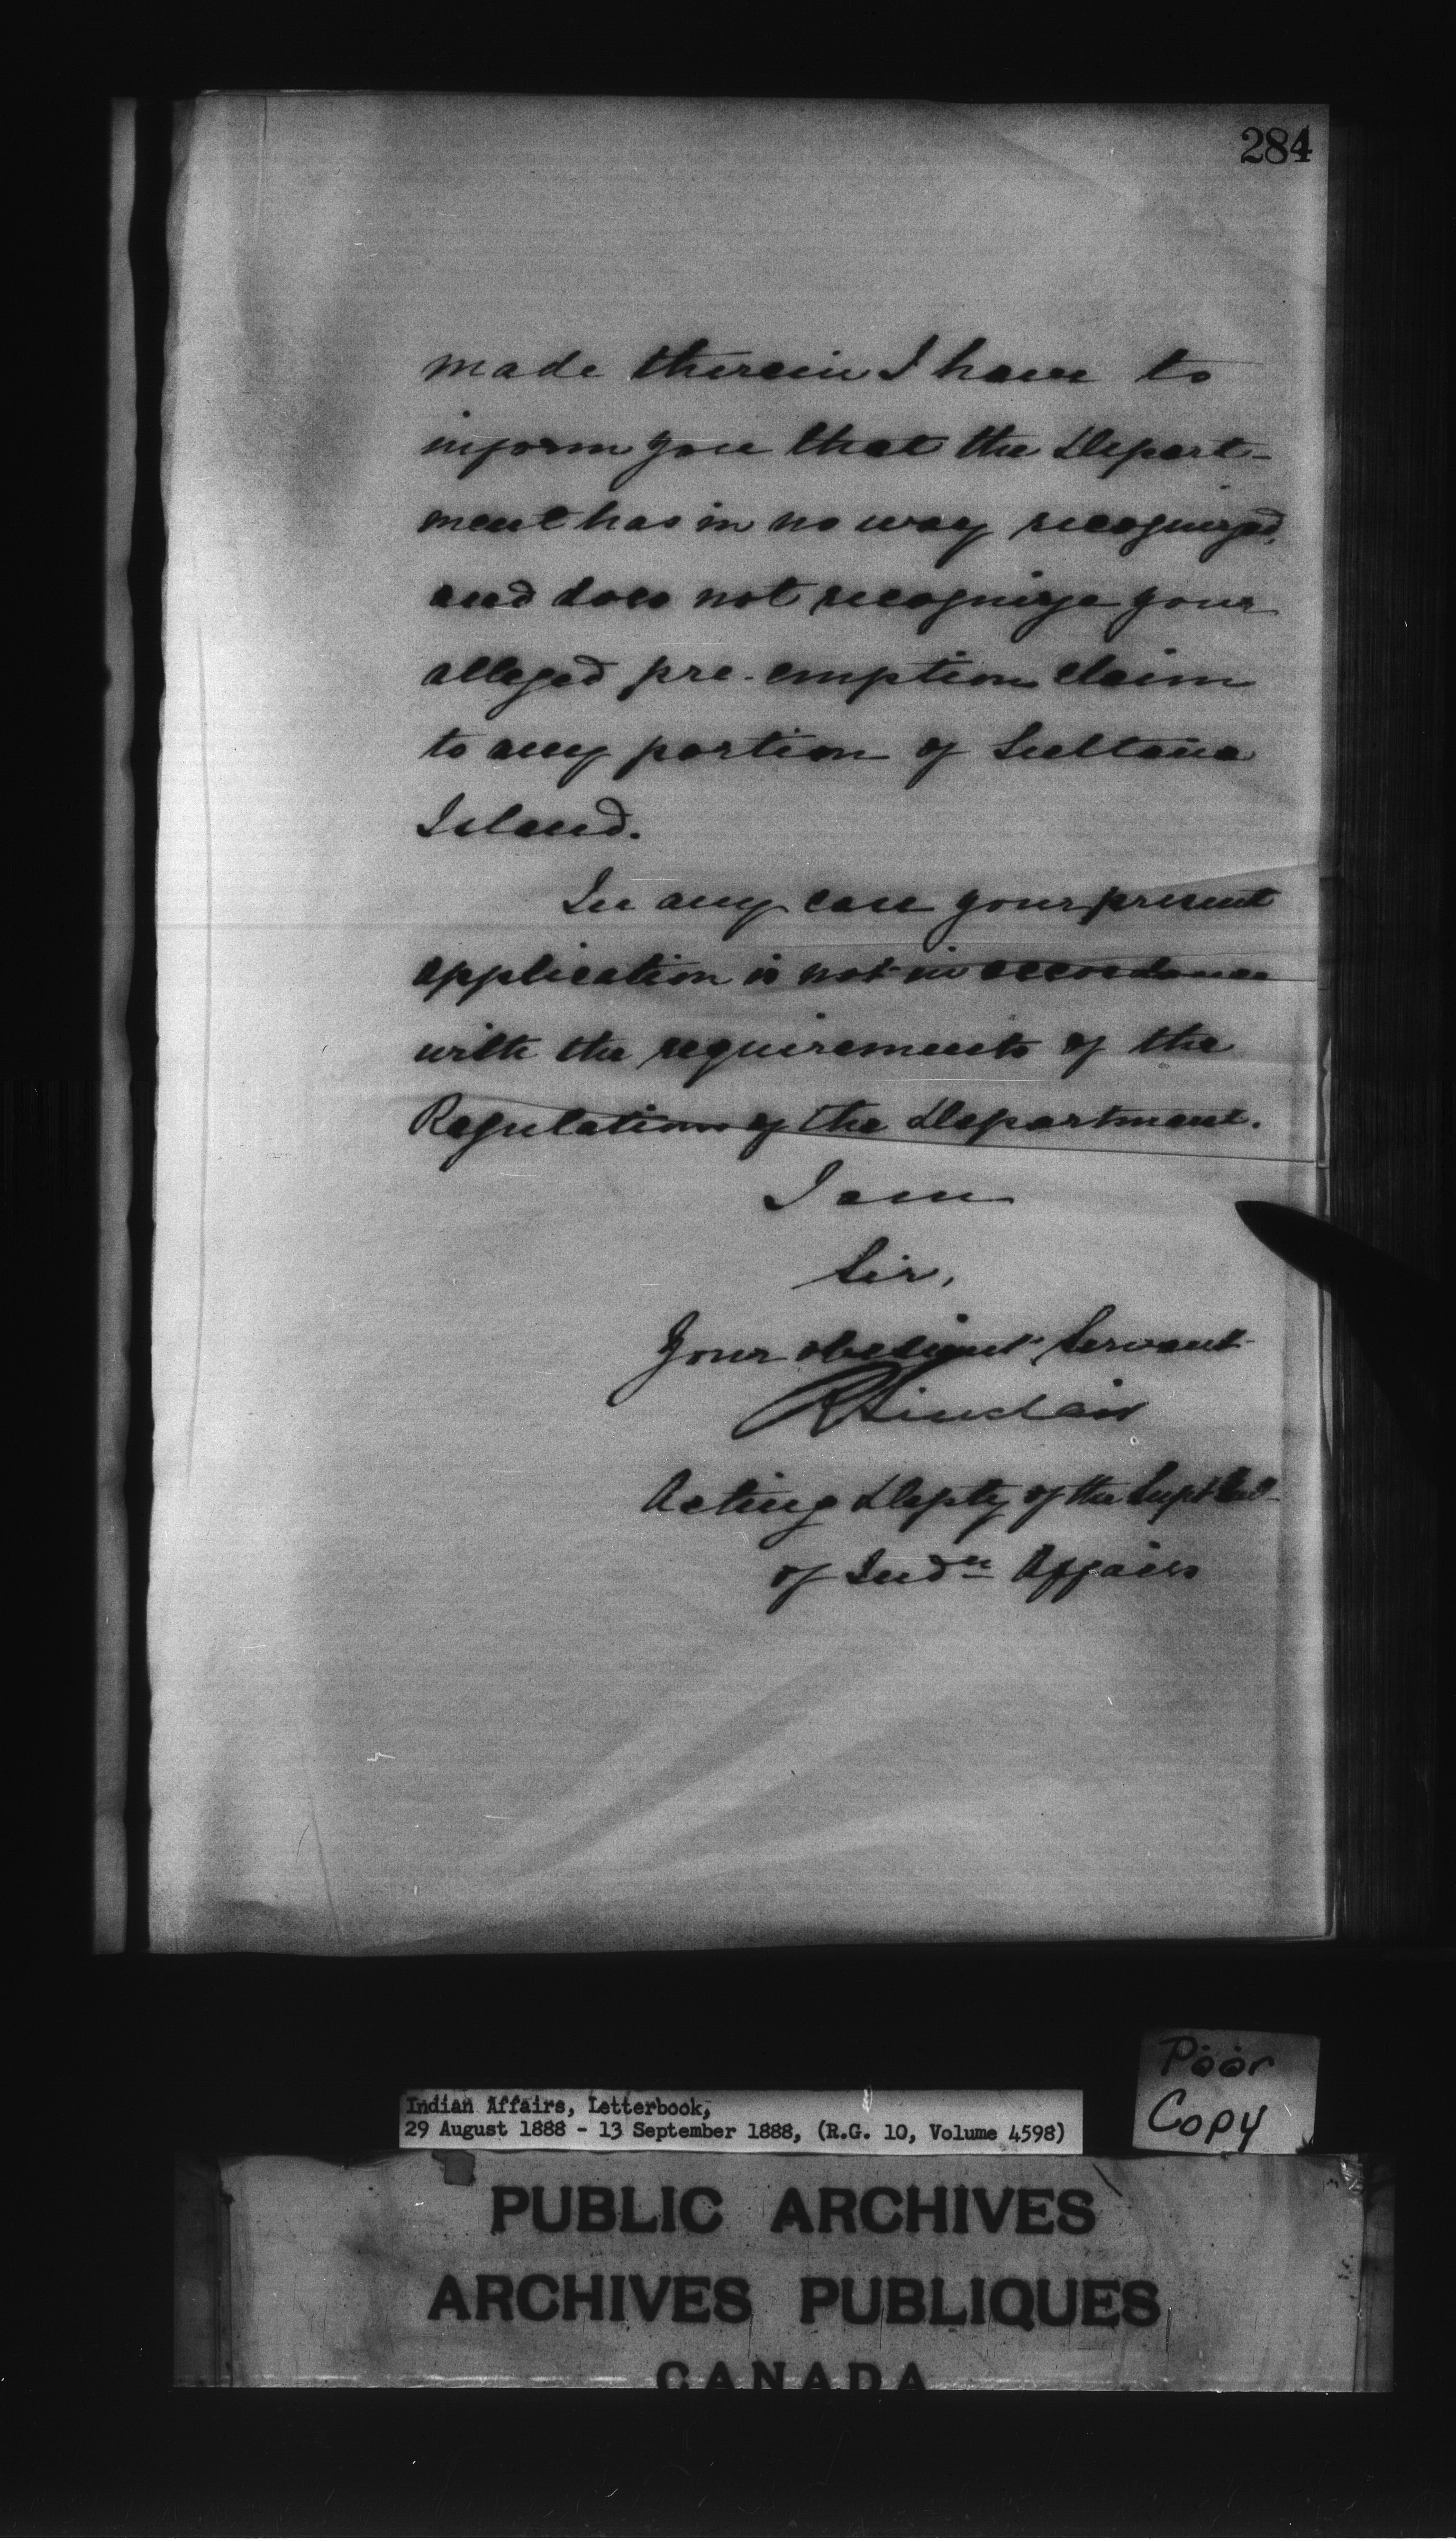 284
made therein I have to
inform you that the Depart-
ment has in no way recognized,
and does not recognize your
alleged pre-emption claim
to any portion of Sultana
Island.
In any case your present
application is not in accordance
with the requirements of the
Regulations of the Department.
I am
Sir,
Your obedient Servant
R Sinclair
Acting Depty of the Supt Genl
of Indn Affairs
Poor
Copy
Indian Affairs, Letterbook,
29 August 1888 - 13 September 1888, (R.G. 10, Volume 4598)
PUBLIC ARCHIVES
ARCHIVES PUBLIQUES
CANADA